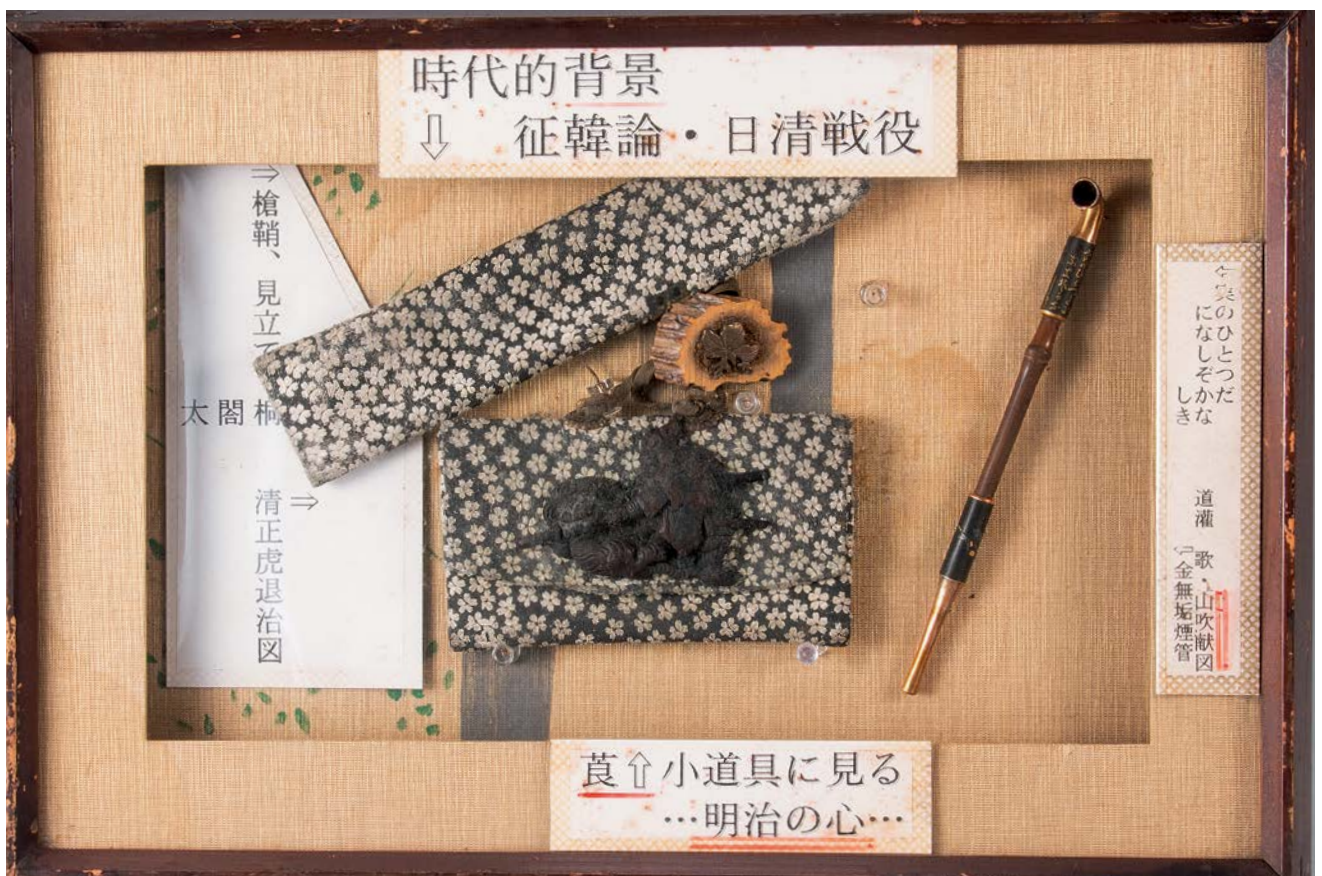 時代的背景
⇩ 征韓論・日清戦役
⇒槍鞘、見立て
太閤桐
⇒
清正虎退治図
のひとつだ
になしぞかな
しき
道灌 歌・山吹献図
⇐金無垢煙管
莨⇧小道具に見る
…明治の心…